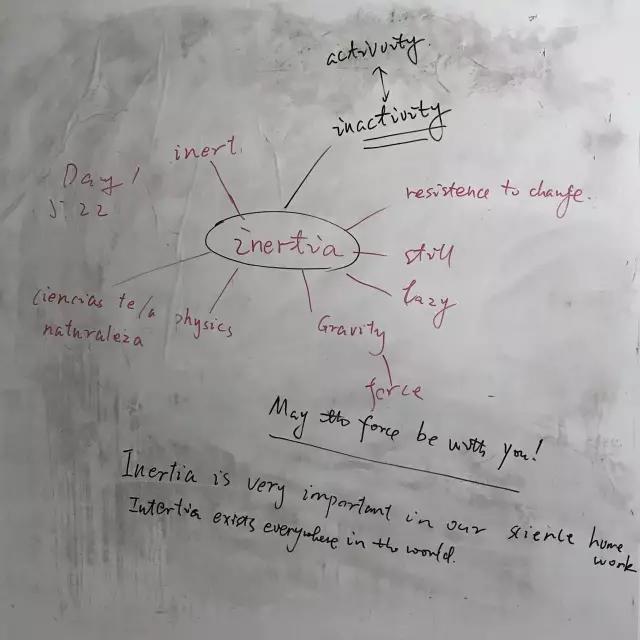 activuity
inactivity
inert.
Day 1
22
resistence to change.
inertia
still
lazy
ciencias te/a
naturaleza
physics
Gravity
force
May the force be with you!
Inertia is very important in our science home
work
Intertia exists everywhere in the world.